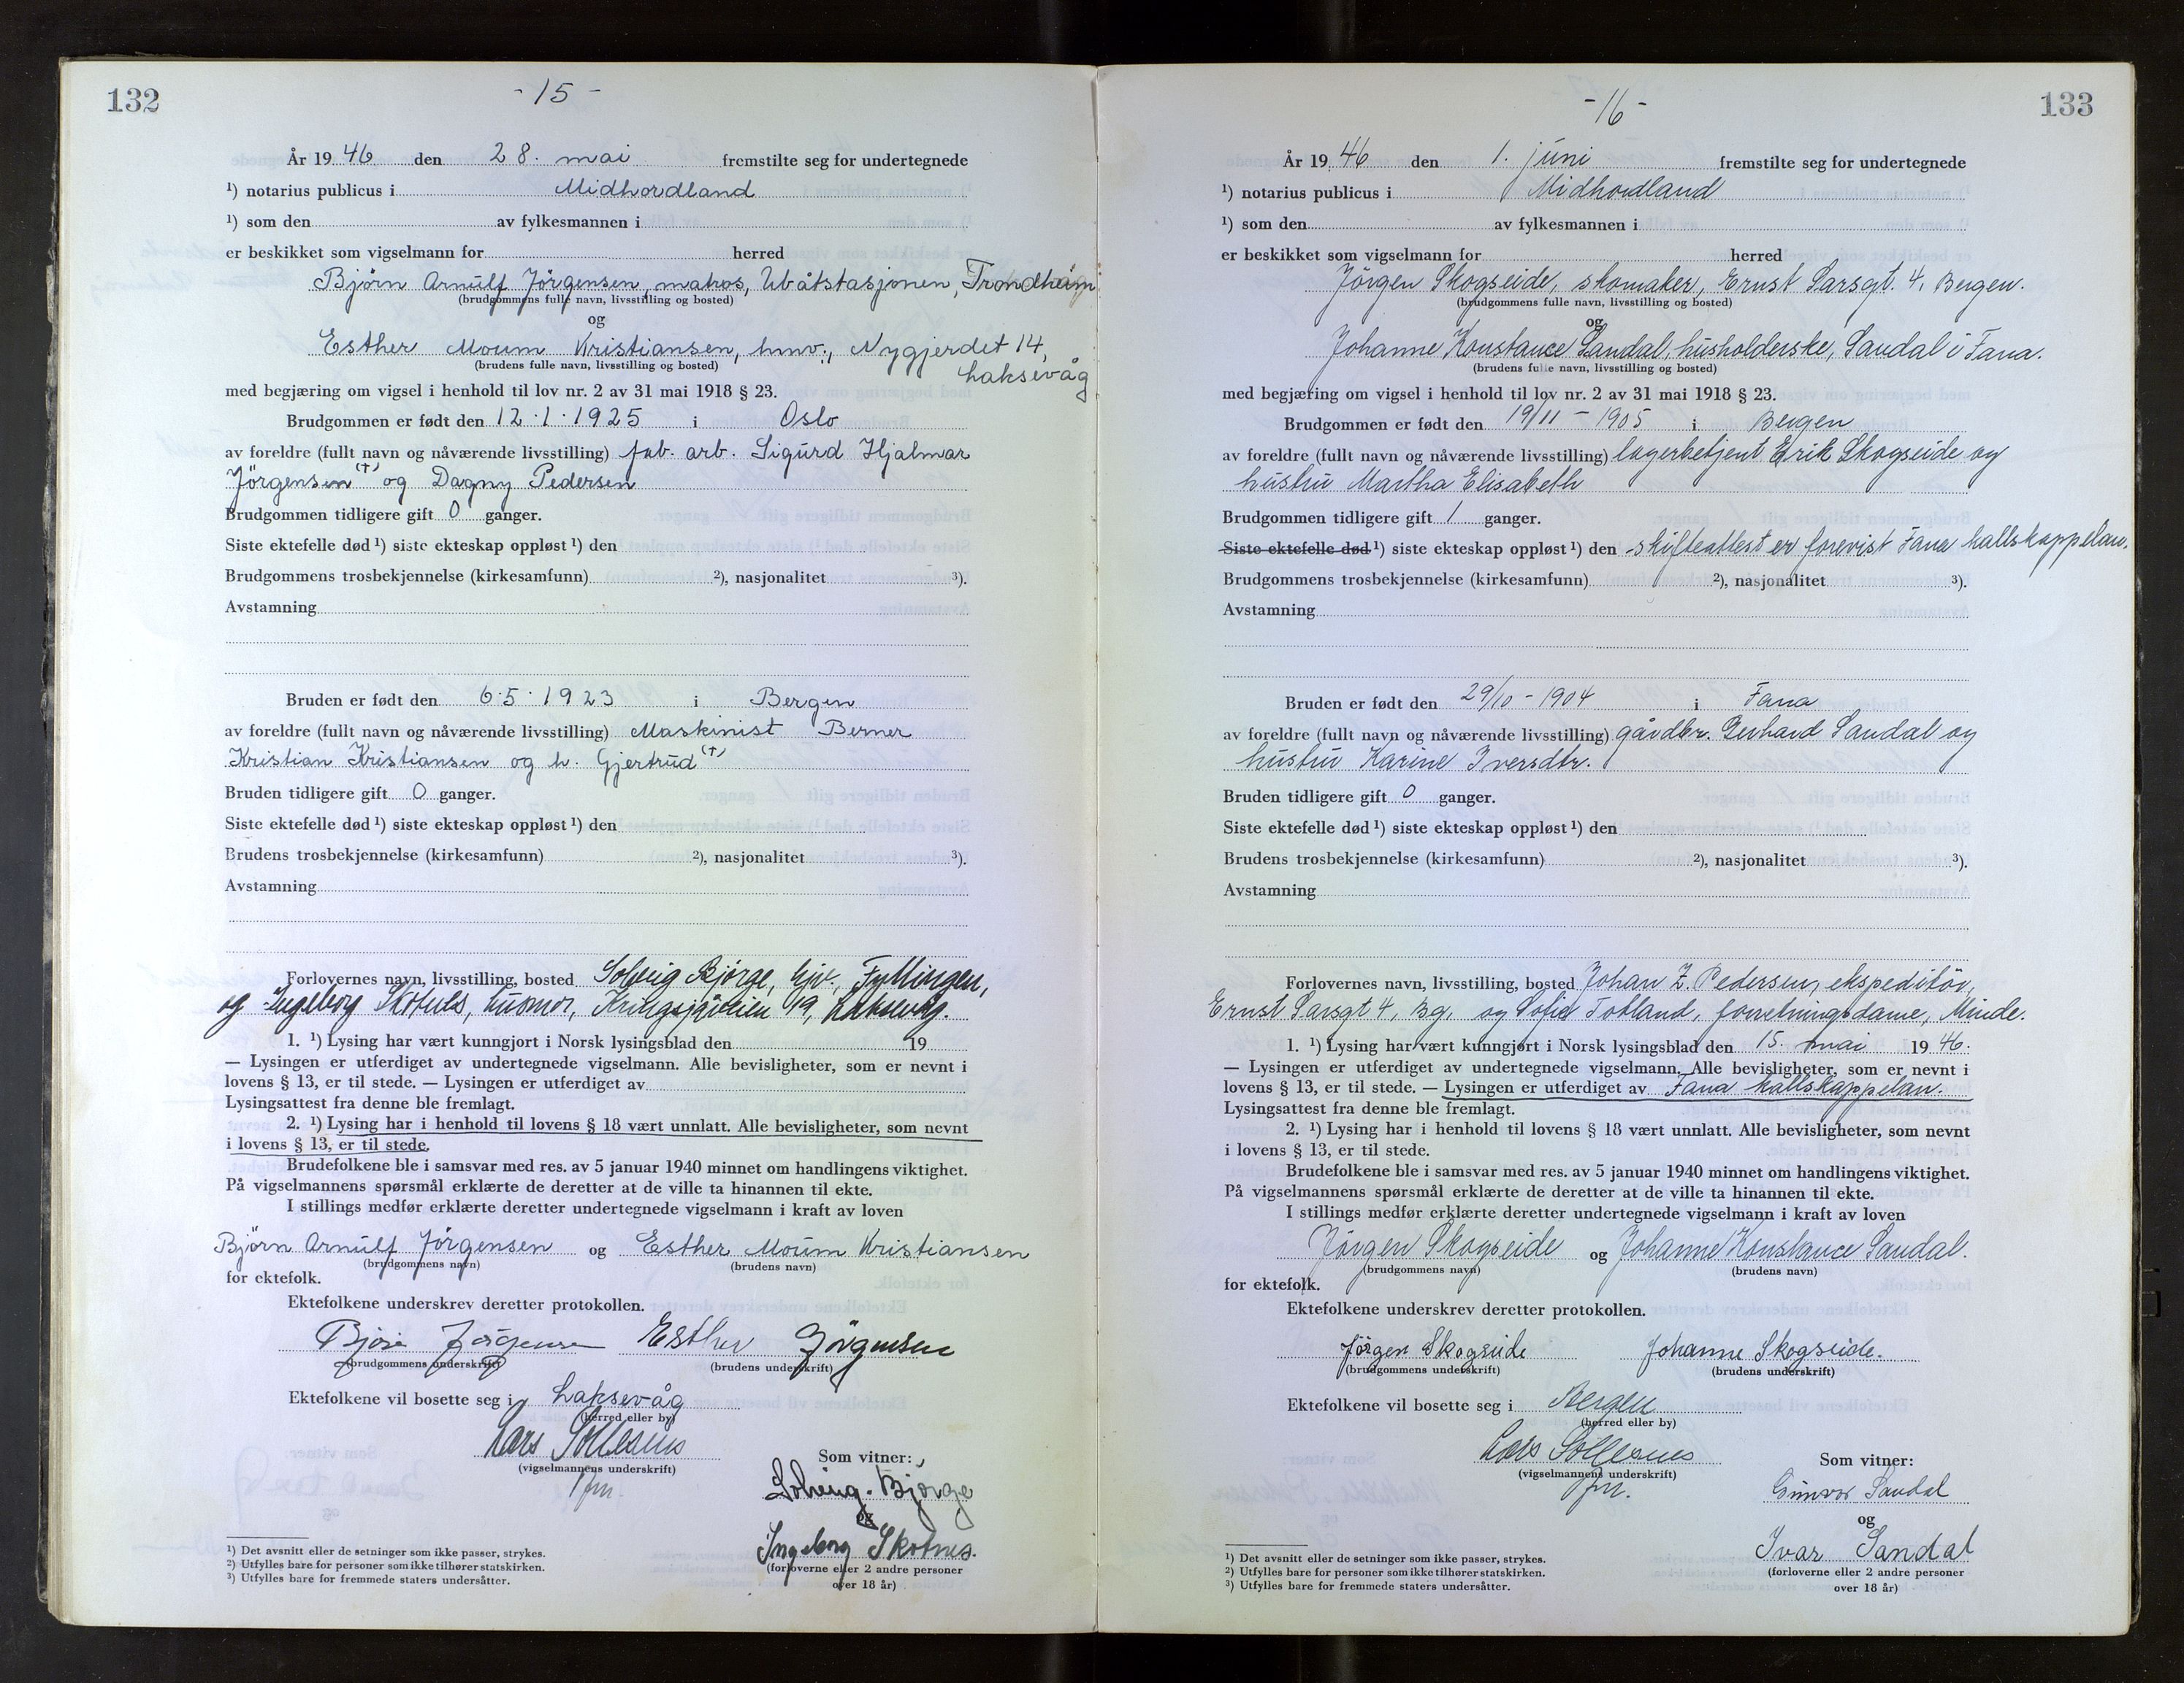 132
- 15 -
År 1946 den 28. mai fremstilte seg for undertegnede
¹) notarius publicus i Midhordland
¹) som den av fylkesmannen i
er beskikket som vigselmann for herred
Bjørn Arnulf Jörgensen, matros, Ubåtstasjonen, Trondheim
(brudgommens fulle navn, livsstilling og bosted)
og
Esther Moum Kristiansen, hmv., Nygjerdet 14,
Laksevåg
(brudens fulle navn, livsstilling og bosted)
med begjæring om vigsel i henhold til lov nr. 2 av 31 mai 1918 § 23.
Brudgommen er født den 12.1.1925 i Oslo
av foreldre (fullt navn og nåværende livsstilling) fab. arb. Sigurd Hjalmar
Jörgensen (†) og Dagny Pedersen
Brudgommen tidligere gift 0 ganger.
Siste ektefelle død ¹) siste ekteskap oppløst ¹) den
Brudgommens trosbekjennelse (kirkesamfunn) ²), nasjonalitet ³).
Avstamning
Bruden er født den 6.5.1923 i Bergen
av foreldre (fullt navn og nåværende livsstilling) Maskinist Berner
Kristian Kristiansen og h. Gjertrud (†)
Bruden tidligere gift 0 ganger.
Siste ektefelle død ¹) siste ekteskap oppløst ¹) den
Brudens trosbekjennelse (kirkesamfunn) ²), nasjonalitet ³).
Avstamning
Forlovernes navn, livsstilling, bosted Solveig Bjørge, hjv. Fyllingen,
og Ingeborg Skotnes, husmor, 49, Laksevåg.
1. ¹) Lysing har vært kunngjort i Norsk lysingsblad den 19
— Lysingen er utferdiget av undertegnede vigselmann. Alle bevisligheter, som er nevnt i
lovens § 13, er til stede. — Lysingen er utferdiget av
Lysingsattest fra denne ble fremlagt.
2. ¹) Lysing har i henhold til lovens § 18 vært unnlatt. Alle bevisligheter, som nevnt
i lovens § 13, er til stede.
Brudefolkene ble i samsvar med res. av 5 januar 1940 minnet om handlingens viktighet.
På vigselmannens spørsmål erklærte de deretter at de ville ta hinannen til ekte.
I stillings medfør erklærte deretter undertegnede vigselmann i kraft av loven
Björn Arnulf Jörgensen og Esther Moum Kristiansen
(brudgommens navn) (brudens navn)
for ektefolk.
Ektefolkene underskrev deretter protokollen.
Bjørn Jørgensen Esther Jörgensen
(brudgommens underskrift) (brudens underskrift)
Ektefolkene vil bosette seg i Laksevåg
(herred eller by)
Lars Söllesnes
(vigselmannens underskrift)
Som vitner:
Solveig Bjørge
og
Ingeborg Skotnes.
(forloverne eller 2 andre personer
over 18 år)
¹) Det avsnitt eller de setninger som ikke passer, strykes.
²) Utfylles bare for personer som ikke tilhører statskirken.
³) Utfylles bare for fremmede staters undersåtter.
133
- 16 -
År 1946 den 1. juni fremstilte seg for undertegnede
¹) notarius publicus i Midhordland
¹) som den av fylkesmannen i
er beskikket som vigselmann for herred
Jörgen Skogseide, skomaker, Ernst Sarsgt. 4, Bergen.
(brudgommens fulle navn, livsstilling og bosted)
og
Johanne Konstance Sandal, husholderske, Sandal i Fana.
(brudens fulle navn, livsstilling og bosted)
med begjæring om vigsel i henhold til lov nr. 2 av 31 mai 1918 § 23.
Brudgommen er født den 19/11 - 1905 i Bergen
av foreldre (fullt navn og nåværende livsstilling) lagerbetjent Erik Skogseide og
hustru Martha Elisabeth
Brudgommen tidligere gift 1 ganger.
Siste ektefelle død ¹) siste ekteskap oppløst ¹) den skifteattest er forevist Fana kallskappelan.
Brudgommens trosbekjennelse (kirkesamfunn) ²), nasjonalitet ³).
Avstamning
Bruden er født den 29/10 - 1904 i Fana
av foreldre (fullt navn og nåværende livsstilling) gårdbr. Gerhard Sandal og
hustru Karine Iversdtr.
Bruden tidligere gift 0 ganger.
Siste ektefelle død ¹) siste ekteskap oppløst ¹) den
Brudens trosbekjennelse (kirkesamfunn) ²), nasjonalitet ³).
Avstamning
Forlovernes navn, livsstilling, bosted Johan Z. Pedersen, ekspeditör,
Ernst Sarsgt 4, Bg. og Sofie Totland, forretningsdame, Minde.
1. ¹) Lysing har vært kunngjort i Norsk lysingsblad den 15. mai 1946.
— Lysingen er utferdiget av undertegnede vigselmann. Alle bevisligheter, som er nevnt i
lovens § 13, er til stede. — Lysingen er utferdiget av Fana kallskappelan.
Lysingsattest fra denne ble fremlagt.
2. ¹) Lysing har i henhold til lovens § 18 vært unnlatt. Alle bevisligheter, som nevnt
i lovens § 13, er til stede.
Brudefolkene ble i samsvar med res. av 5 januar 1940 minnet om handlingens viktighet.
På vigselmannens spørsmål erklærte de deretter at de ville ta hinannen til ekte.
I stillings medfør erklærte deretter undertegnede vigselmann i kraft av loven
Jörgen Skogseide og Johanne Konstance Sandal.
(brudgommens navn) (brudens navn)
for ektefolk.
Ektefolkene underskrev deretter protokollen.
Jörgen Skogseide Johanne Skogseide.
(brudgommens underskrift) (brudens underskrift)
Ektefolkene vil bosette seg i Bergen
(herred eller by)
Lars Söllesnes
(vigselmannens underskrift)
Som vitner:
Gunvor Sandal
og
Ivar Sandal
(forloverne eller 2 andre personer
over 18 år)
¹) Det avsnitt eller de setninger som ikke passer, strykes.
²) Utfylles bare for personer som ikke tilhører statskirken.
³) Utfylles bare for fremmede staters undersåtter.